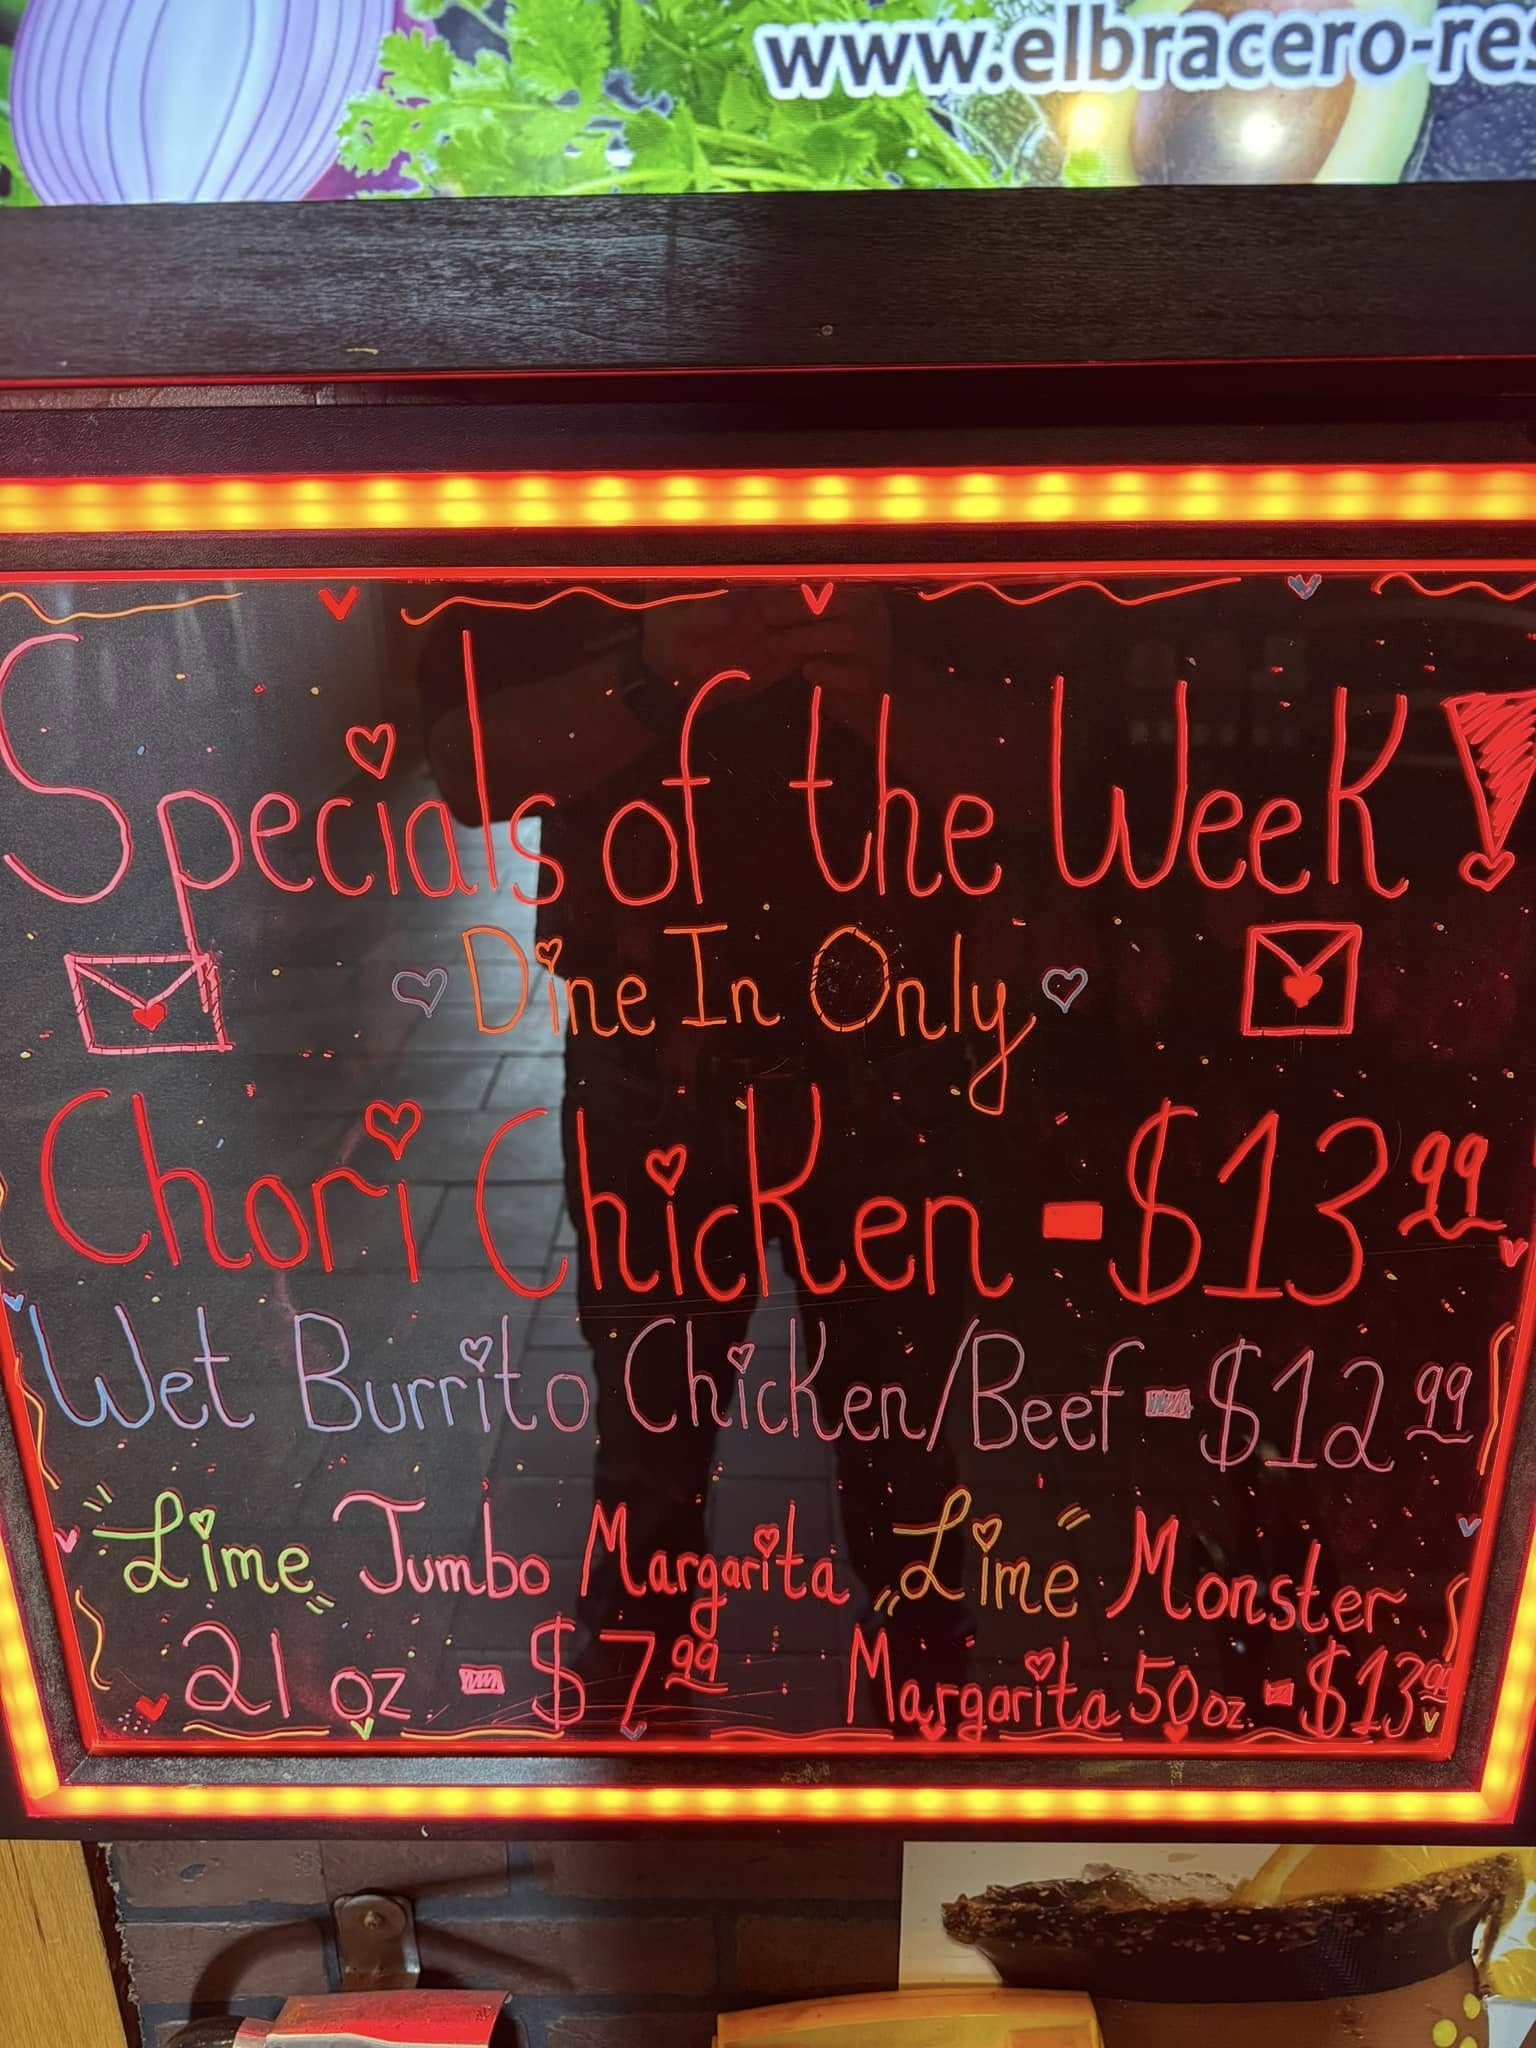 www.elbracero-res
Specials of the Week!
Dine In Only
Chori Chicken - $13.99
Wet Burrito Chicken/Beef - $12.99
"Lime" Jumbo Margarita
21 oz - $7.99
"Lime" Monster
Margarita 50oz. - $13.99